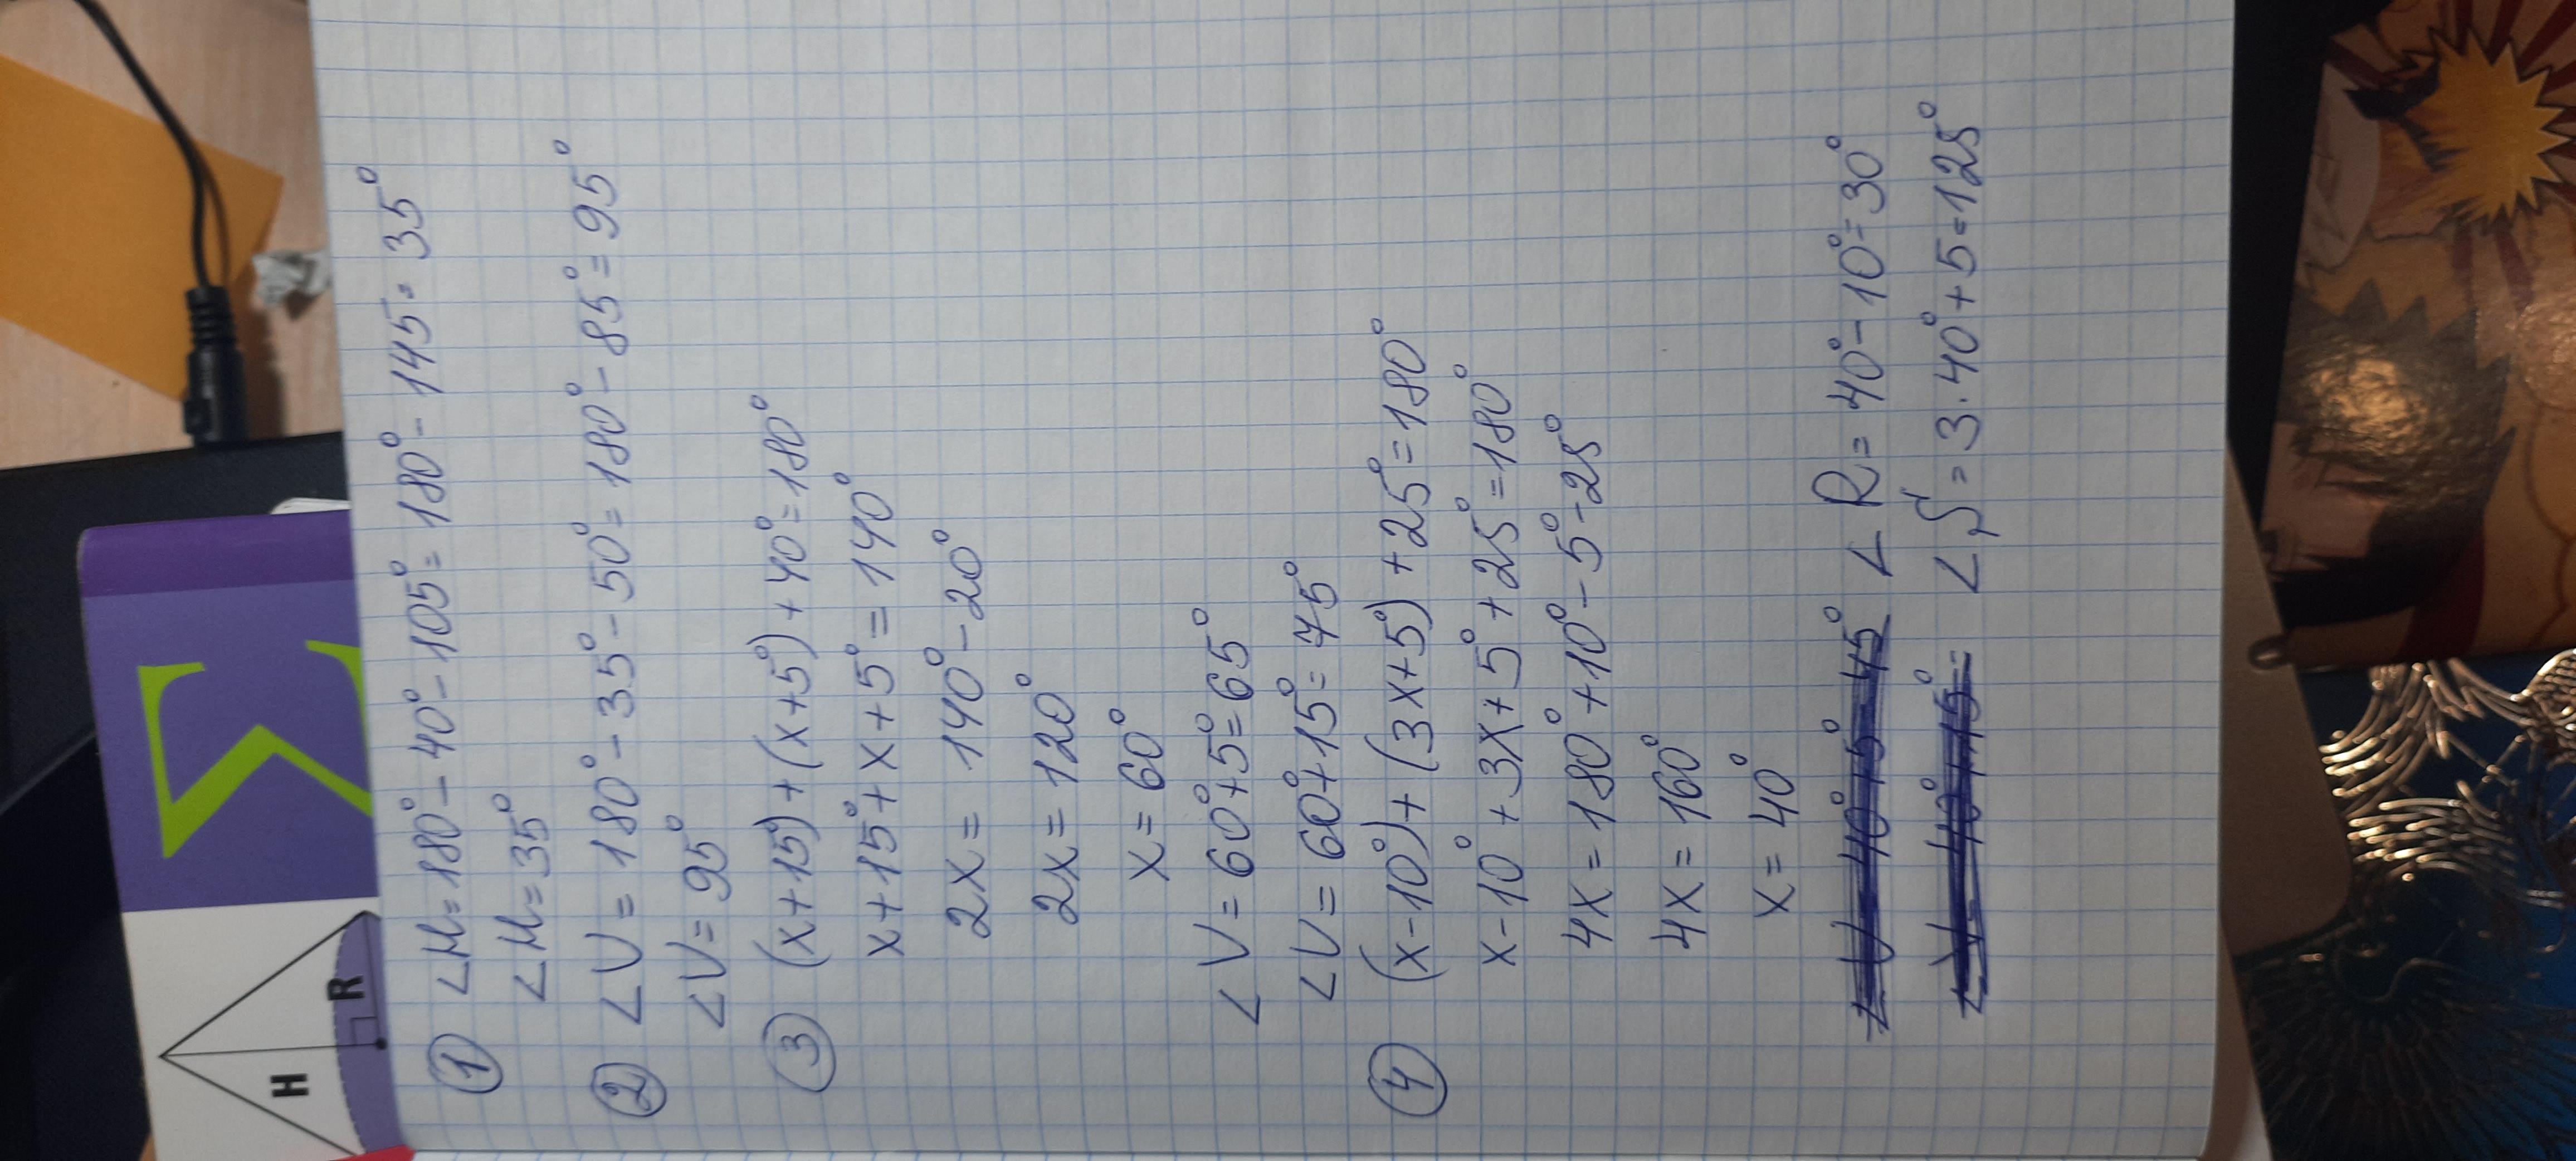 H
R
① ∠M=180°-40°-105°=180°-145=35°
∠M=35°
② ∠U=180°-35°-50°=180°-85°=95°
∠U=95°
③ (x+15°)+(x+5°)+40°=180°
x+15°+x+5°=140°
2x=140°-20°
2x=120°
x=60°
∠V=60°+5°=65°
∠U=60°+15°=75°
④ (x-10°)+(3x+5°)+25°=180°
x-10°+3x+5°+25°=180°
4x=180°+10°-5°-25°
4x=160°
x=40°
∠R=40°-10°=30°
∠S=3·40°+5=125°